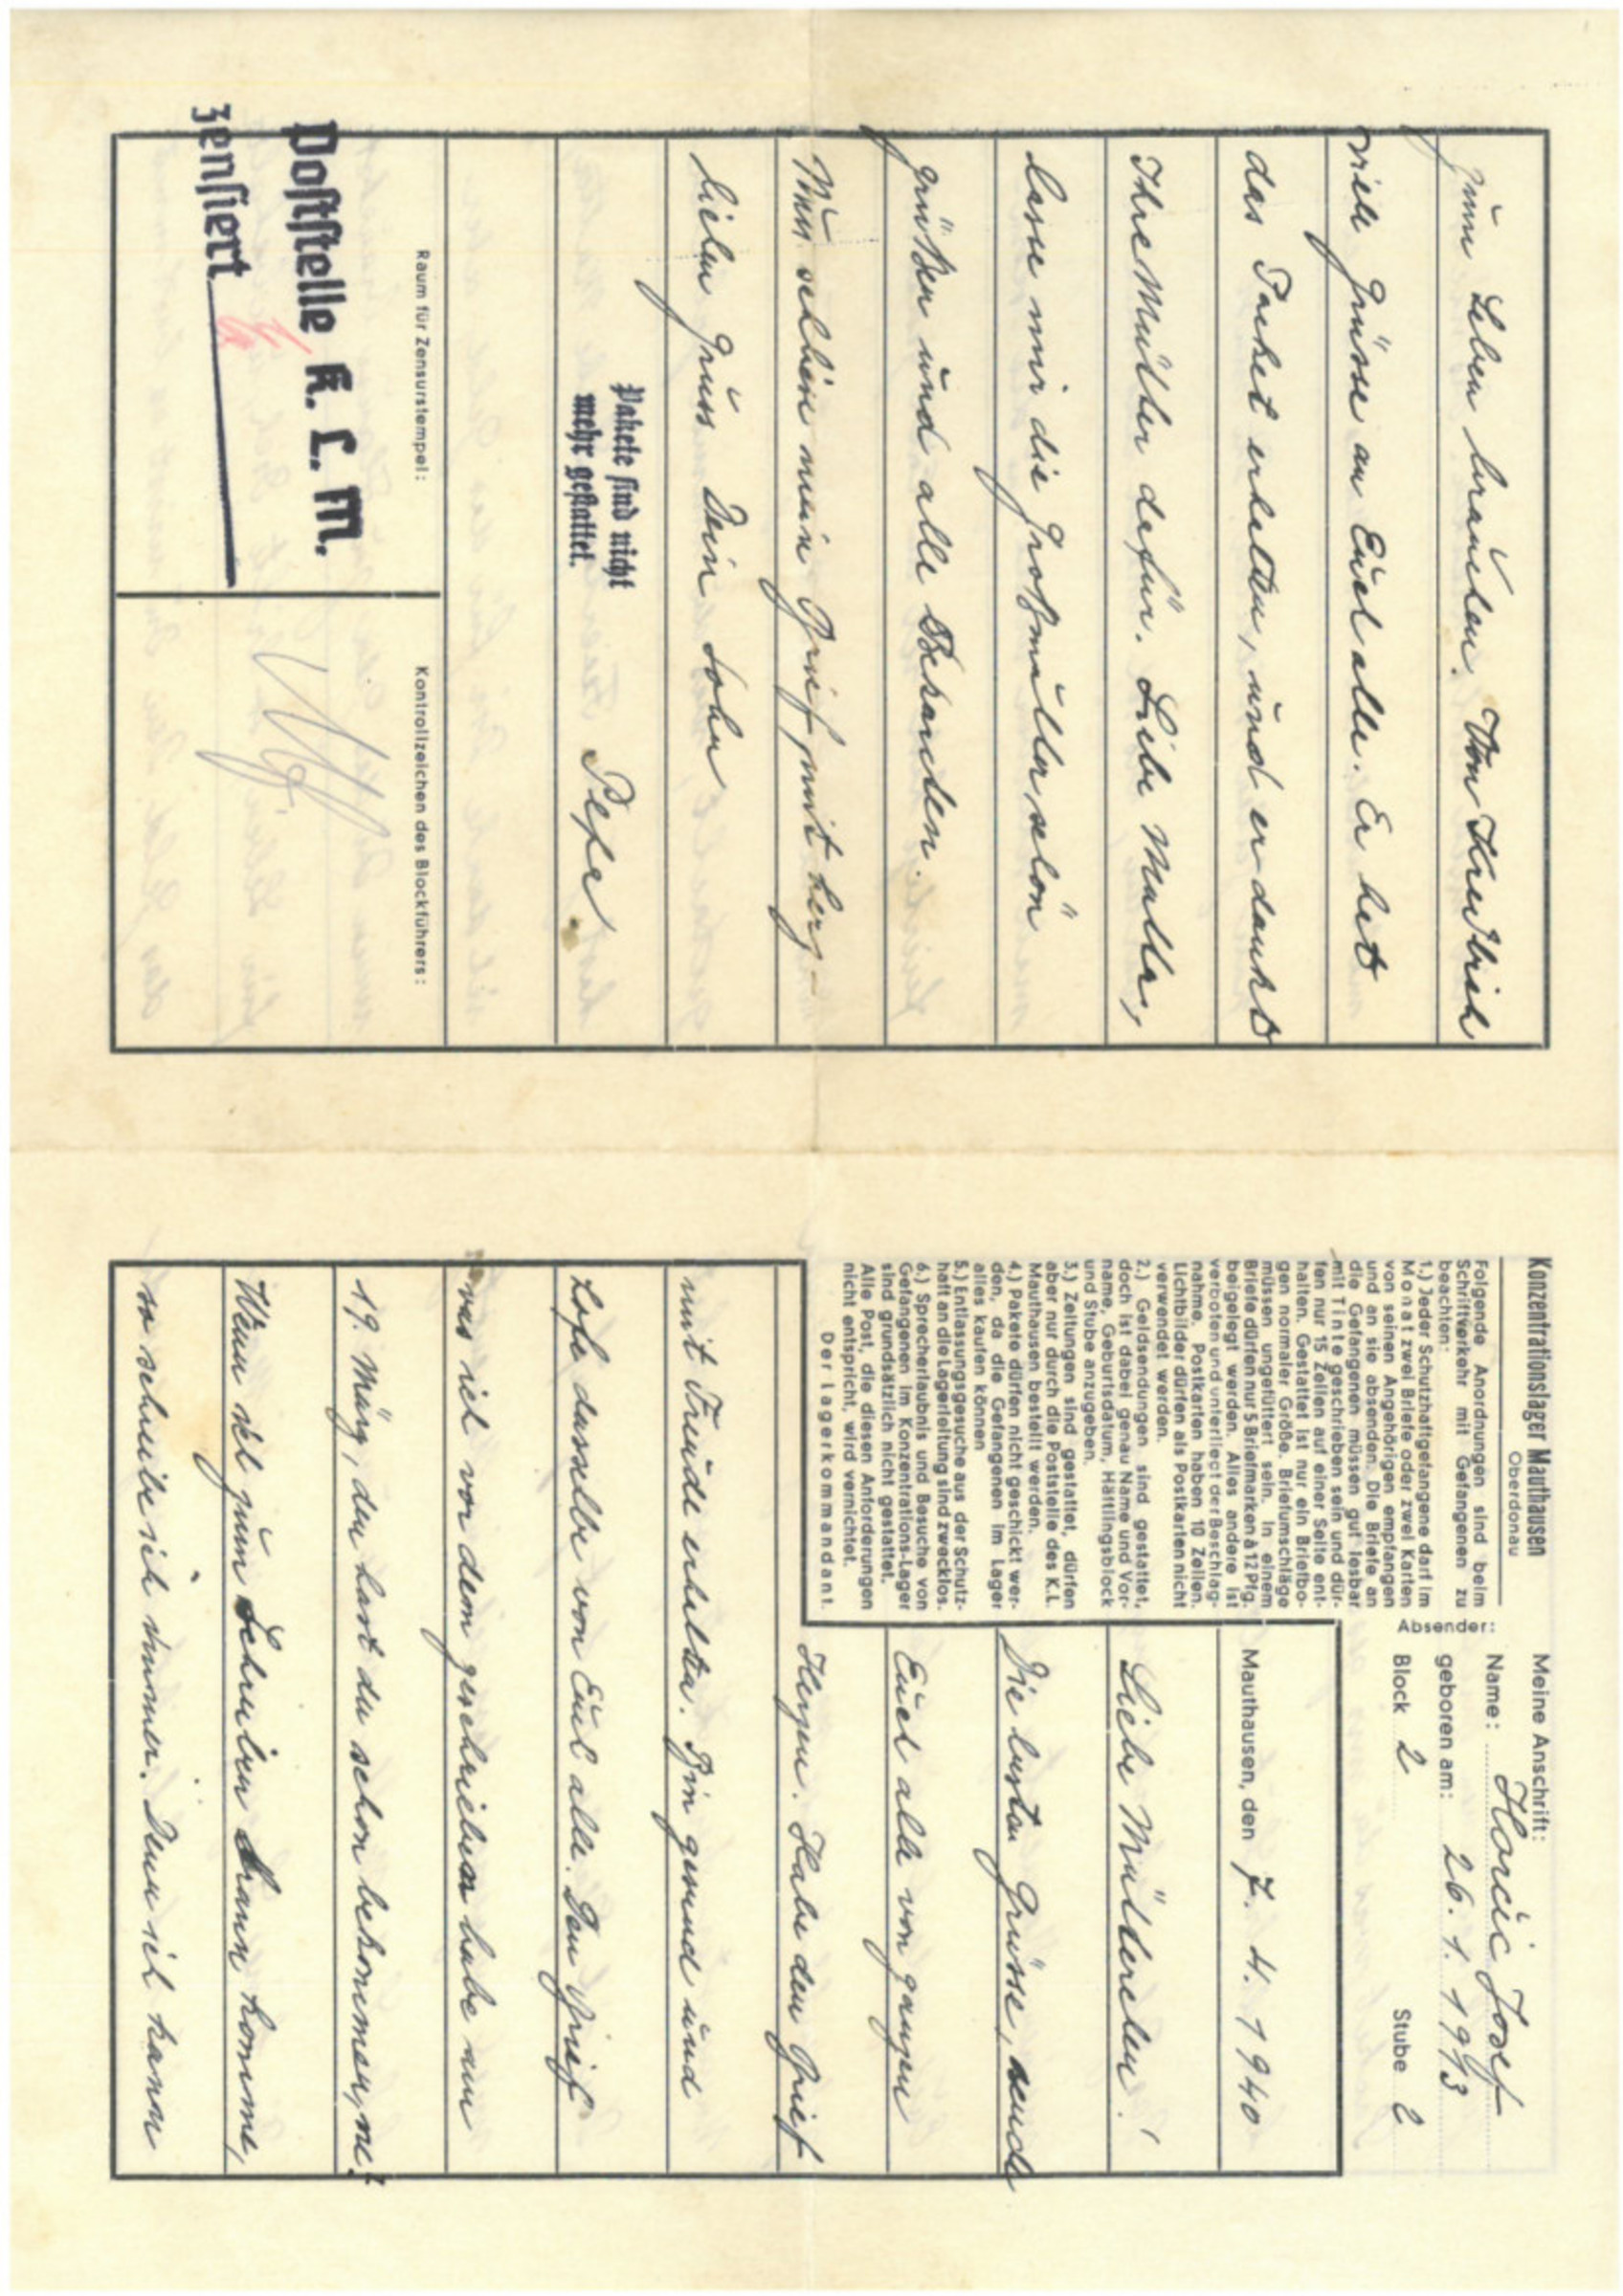 Konzentrationslager Mauthausen
Oberdonau
Folgende Anordnungen sind beim
Schriftverkehr mit Gefangenen zu
beachten:
1.) Jeder Schutzhaftgefangene darf im
Monat zwei Briefe oder zwei Karten
von seinen Angehörigen empfangen
und an sie absenden. Die Briefe an
die Gefangenen müssen gut lesbar
mit Tinte geschrieben sein und dür-
fen nur 15 Zeilen auf einer Seite ent-
halten. Gestattet ist nur ein Briefbo-
gen normaler Größe. Briefumschläge
müssen ungefüttert sein. In einem
Briefe dürfen nur 5 Briefmarken à 12 Pfg.
beigelegt werden. Alles andere ist
verboten und unterliegt der Beschlag-
nahme. Postkarten haben 10 Zeilen.
Lichtbilder dürfen als Postkarten nicht
verwendet werden.
2.) Geldsendungen sind gestattet,
doch ist dabei genau Name und Vor-
name, Geburtsdatum, Häftlingsblock
und Stube anzugeben.
3.) Zeitungen sind gestattet, dürfen
aber nur durch die Poststelle des K.L.
Mauthausen bestellt werden.
4.) Pakete dürfen nicht geschickt wer-
den, da die Gefangenen im Lager
alles kaufen können
5.) Entlassungsgesuche aus der Schutz-
haft an die Lagerleitung sind zwecklos.
6.) Sprecherlaubnis und Besuche von
Gefangenen im Konzentrations-Lager
sind grundsätzlich nicht gestattet.
Alle Post, die diesen Anforderungen
nicht entspricht, wird vernichtet.
Der Lagerkommandant.
Meine Anschrift:
Absender:
Name: Horčic Josef
geboren am: 26. 1. 1913
Block 2 Stube 2
Mauthausen, den 7. 4. 1940
Liebe Mütterchen!
Die besten Grüsse, sende
Euch alle von ganzen
Herzen. Habe den Brief
mit Freude erhalten. Bin gesund und
hofe dasselbe von Euch alle. Den Brief
was ich vor dem geschrieben habe am
19. März, den hast du schon bekommen, ne?
Wenn ich zum Schreiben kann komme,
so schreibe ich immer. Denn ich kann
zum Leben brauchen. Von
viele Grüsse an Euch alle. Er hat
das Packet erhalten, und er dankt
Ihre Mutter dafür. Liebe Mutter,
lasse mir die Großmutter schön
grüßen und alle Bekanten.
Nun schliese mein Brief mit herz-
lichen Gruss Dein Sohn
Pepa
Pakete sind nicht
mehr gestattet.
Raum für Zensurstempel:
Poststelle K. L. M.
zensiert
Kontrollzeichen des Blockführers: